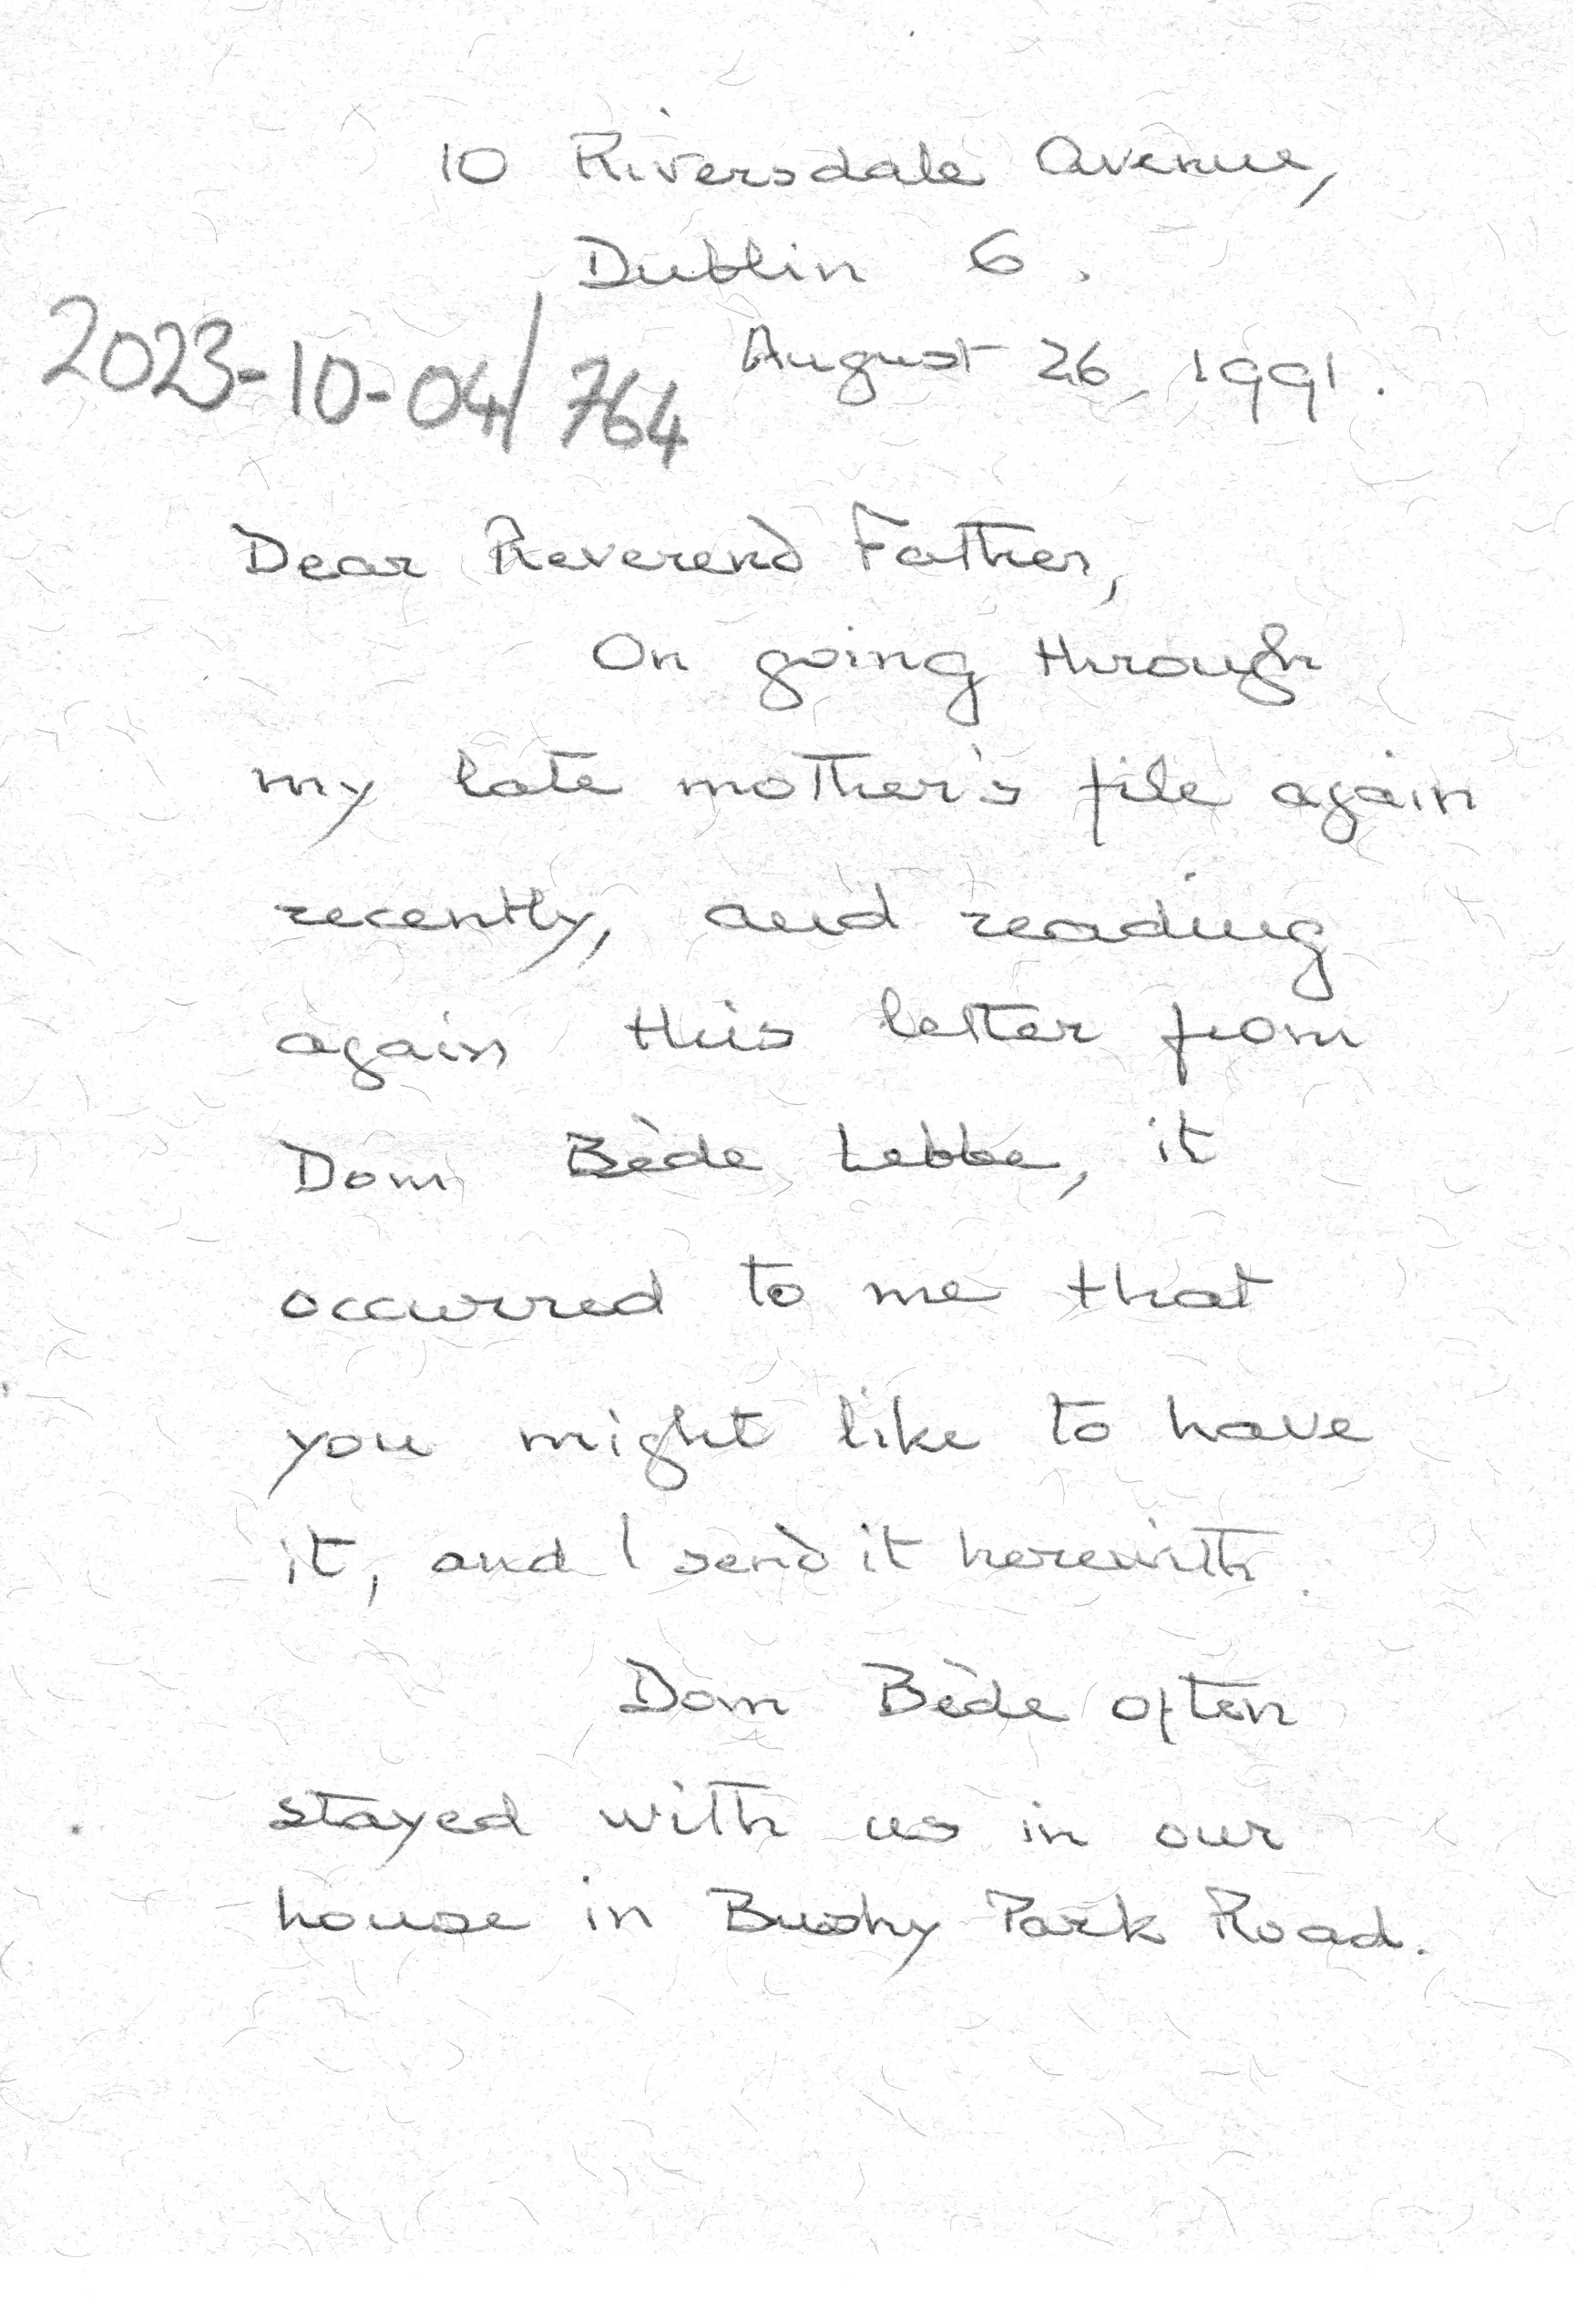 10 Riversdale Avenue,
Dublin 6.
2023-10-04/764
August 26, 1991.
Dear Reverend Father,
On going through
my late mother's file again
recently, and reading
again this letter from
Dom Bède Lebbe, it
occurred to me that
you might like to have
it, and I send it herewith.
Dom Bède often
stayed with us in our
house in Bushy Park Road.